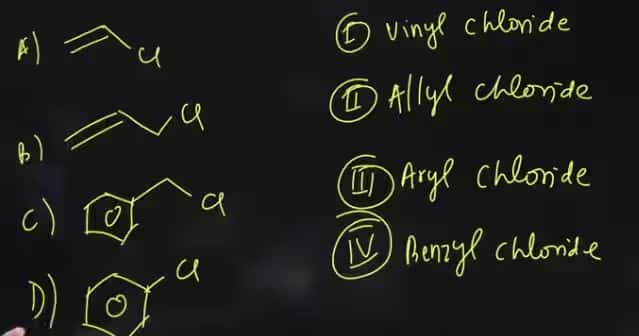 A) Cl
I Vinyl chloride
B) Cl
II Allyl chloride
C) Cl
III Aryl chloride
D) Cl
IV Benzyl chloride